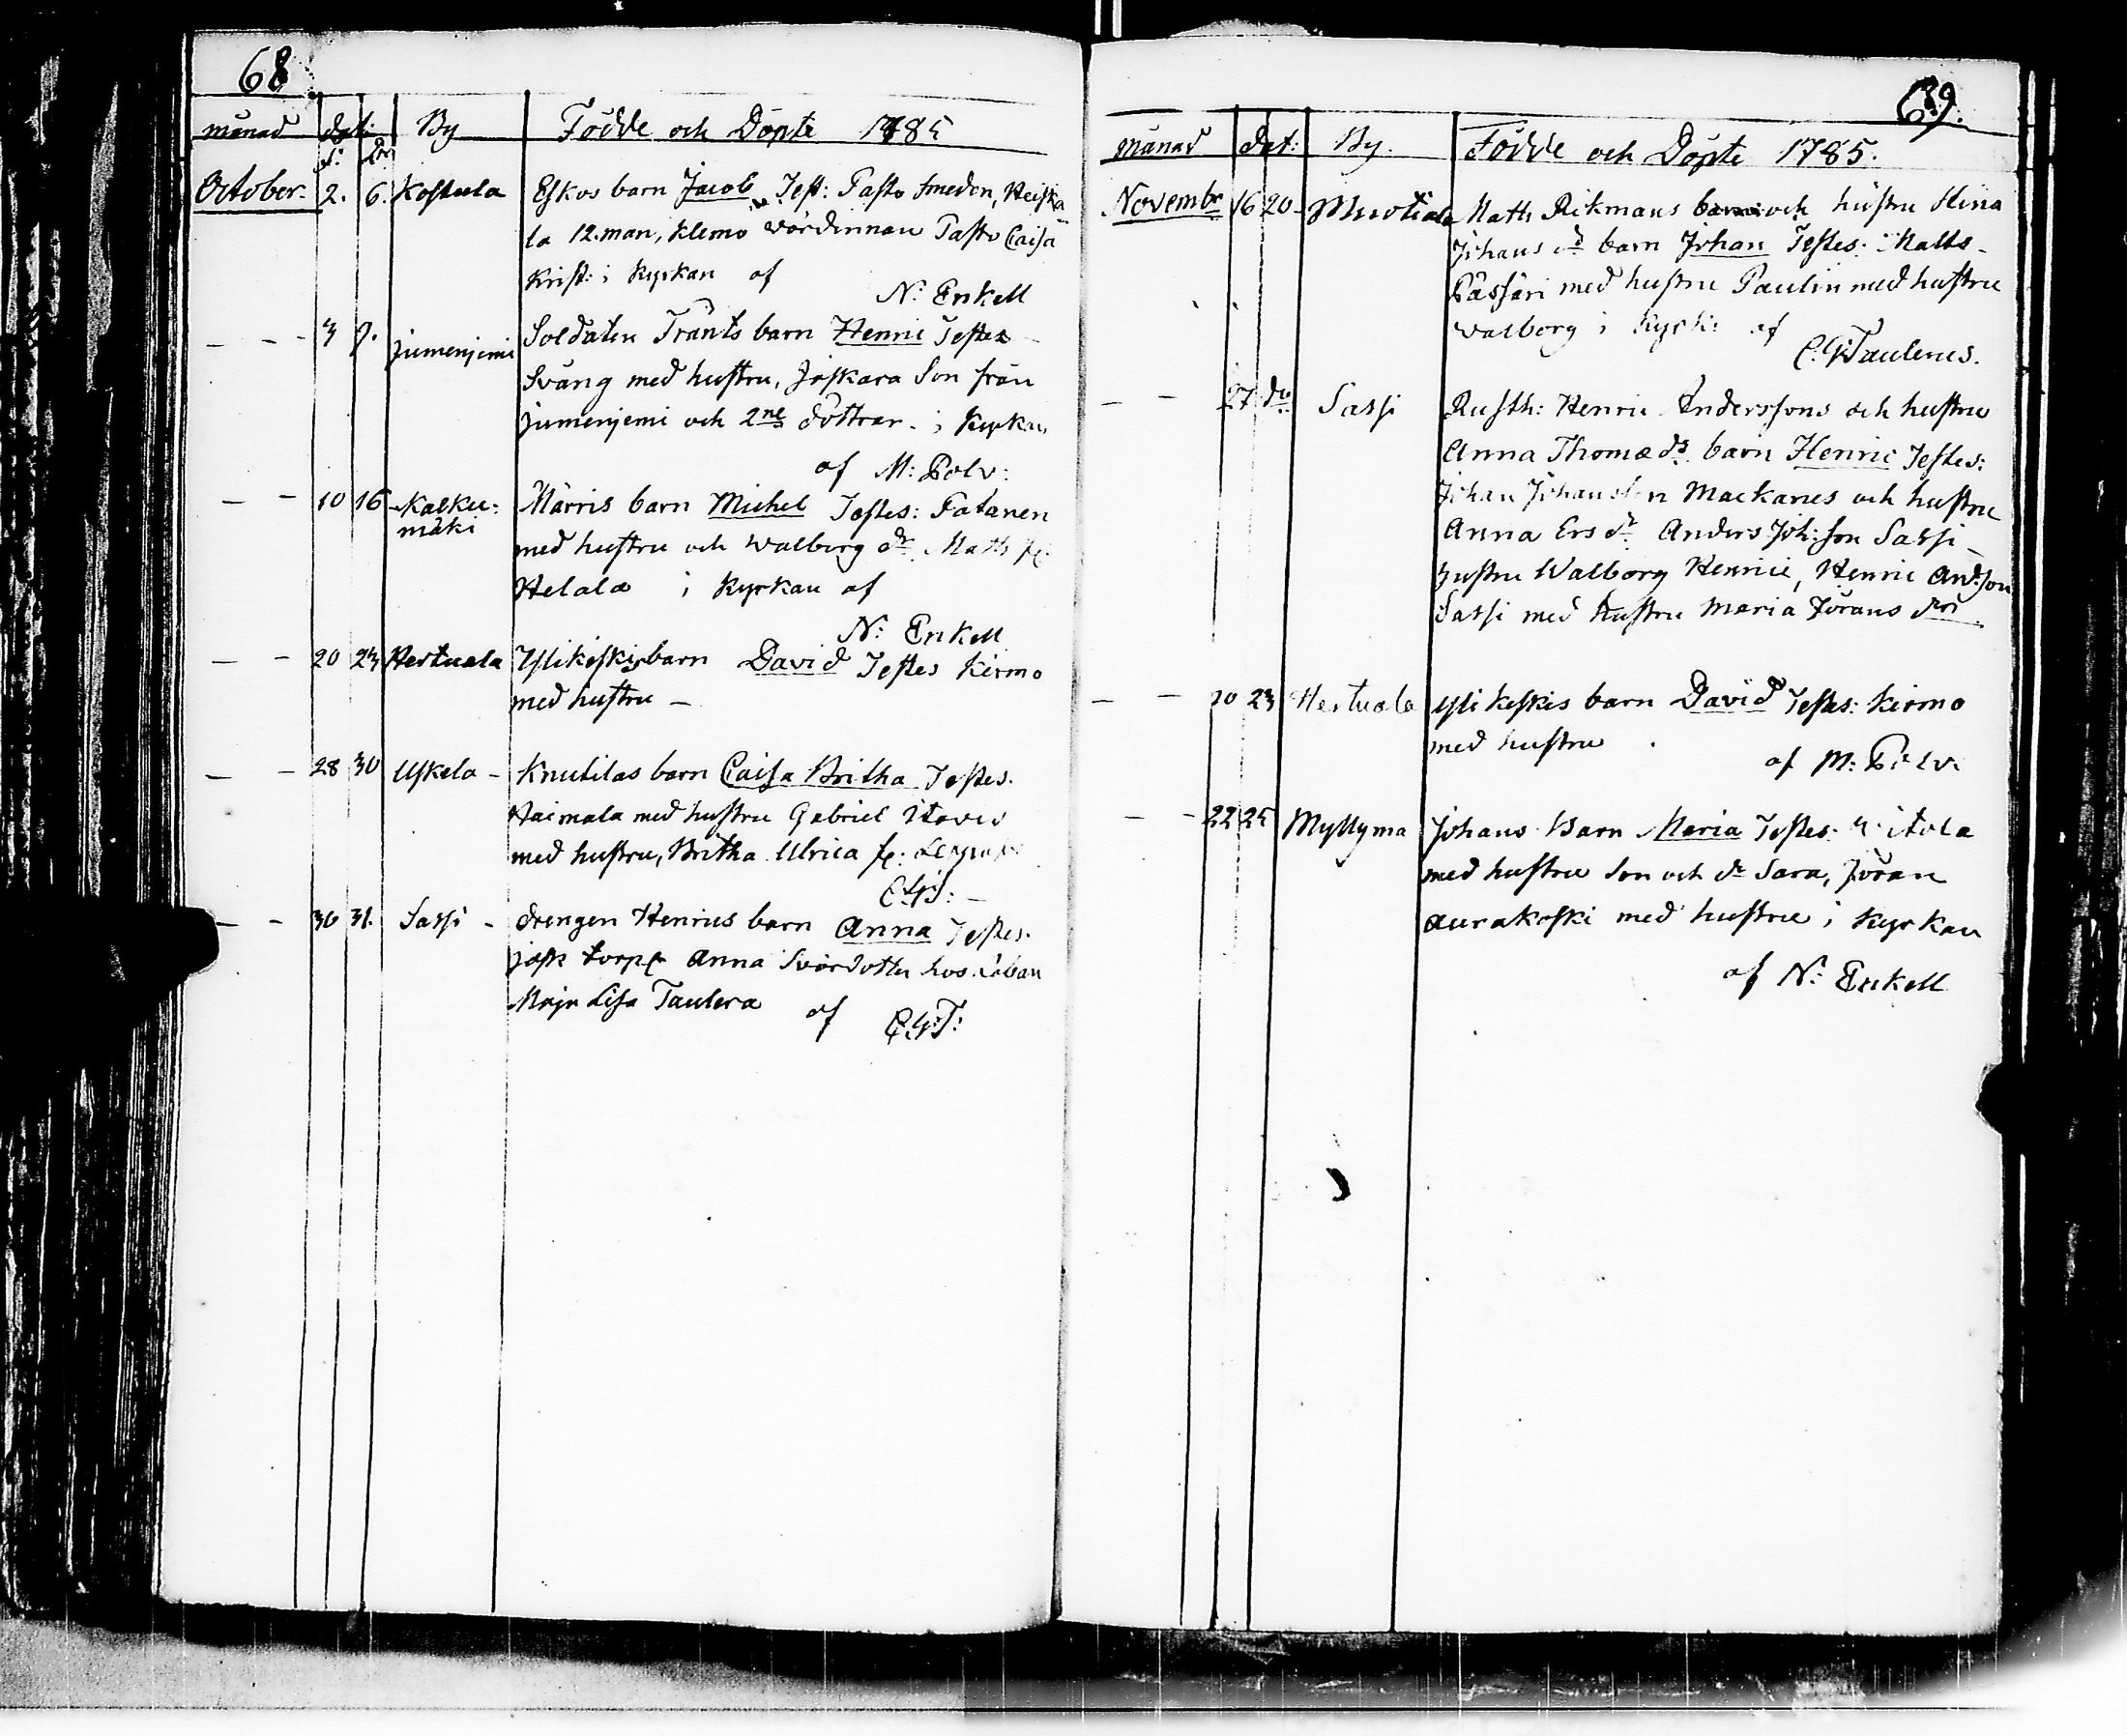 68
månad dat: By Födde och Döpte 1785
f: dn
October. 2. 6. Kostula Eskos barn Jacob Test: Pasto smeden, Heiska
la 12.man, Klemo värdinnan Pasto Caisa
Krist: i Kyrkan af
N: Enkell
- - 3 9. Jumenjemi Soldaten Trants barn Henric Testes
Sväng med hustru, Joskara Son från
Jumenjemi och 2ne döttrar. i Kyrkan
af M: Polv:
- - 10 16 Kalku:
mäki
Märris barn Michel Testes: Patanen
med hustru och Walborg dr Matts
Helala i Kyrkan af
N: Enkell
- - 20 23 Hertuala Ylikeskis barn David Testes Kirmo
med hustru -
- - 28 30 Uskela - Knutilas barn Caisa Britha Testes.
Haimala med hustru Gabriel
med hustru, Britha Ulrica
C.G.T: -
- - 30 31. Sassi - drengen Henrics barn Anna Testes.
torp Anna Svärdotter hos
Maja Lisa Taulera af C.G.T:
69.
månad dat: By. Födde och Döpte 1785.
Novembr 16 20 - Muotiala Matts Rikmans barn och hustru Stina
Johans dr barn Johan Testes: Matts
Pässäri med hustru Paulin med hustru
Walborg i Kyrk: af
C.G.Taulerus.
- - 27 do Sassi Rusth: Henric Anderssons och hustru
Anna Thomæ dr barn Henric Testes:
Johan Johansson Mackanes och hustru
Anna Ers dr Anders Joh:son Sassi
hustru Walborg Henric, Henric And:son
Sassi med hustru Maria Jörans dri
- - 20 23 Hertuala Ylikeskis barn David Testes: Kirmo
med hustru
af M: Polv:
- - 22 25 Myllyma Johans Barn Maria Testes:
med hustru Son och dr Sara, Jöran
Aurakoski med hustru i Kyrkan
af N: Enkell